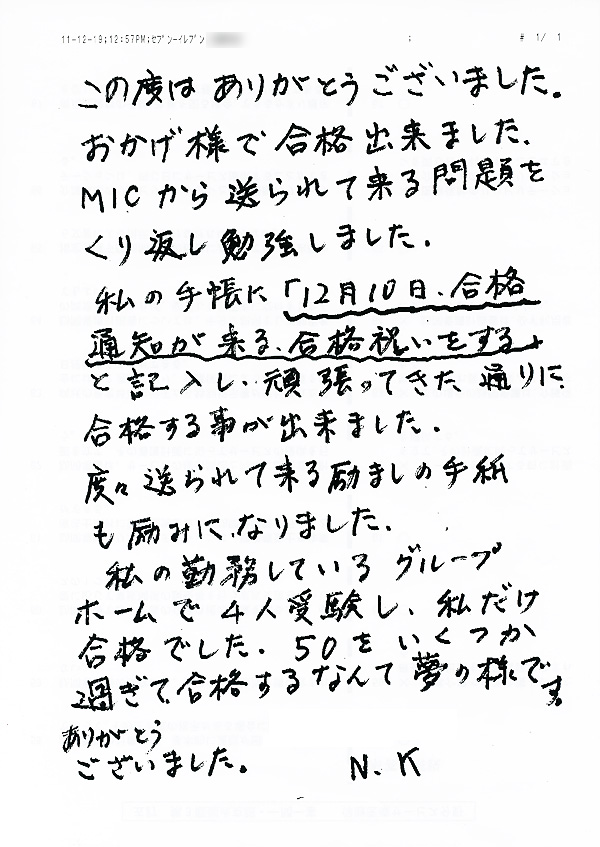 11-12-19;12:57PM;ｾﾌﾞﾝ-ｲﾚﾌﾞﾝ ; # 1/ 1
この度はありがとうございました。
おかげ様で合格出来ました.
MICから送られて来る問題を
くり返し勉強しました.
私の手帳に「12月10日、合格
通知が来る、合格祝いをする」
と記入し、頑張ってきた通りに
合格する事が出来ました.
度々送られて来る励ましの手紙
も励みになりました.
私の勤務しているグループ
ホームで4人受験し、私だけ
合格でした. 50をいくつか
過ぎて合格するなんて夢の様です。
ありがとう
ございました。 N.K